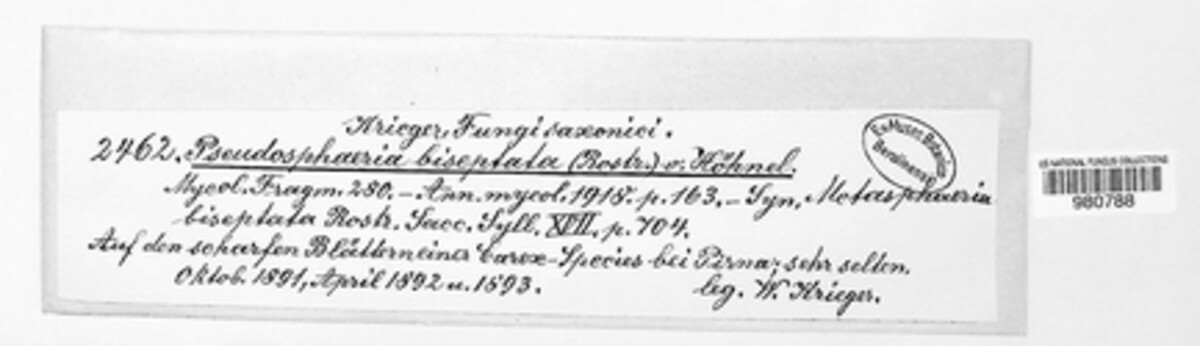 Krieger, Fungi saxonici.
2462. Pseudosphaeria biseptata (Rostr.) v. Höhnel.
Mycol. Fragm. 280. – Ann. mycol. 1918. p. 163. – Syn. Metasphaeria
biseptata Rostr. Sacc. Syll. XVII. p. 704.
Auf den scharfen Blättern einer Carex-Species bei Pirna; sehr selten.
Oktob. 1891, April 1892 u. 1893.
leg. W. Krieger.
Ex Museo Botanico
Berolinensi
US NATIONAL FUNGUS COLLECTIONS
980788